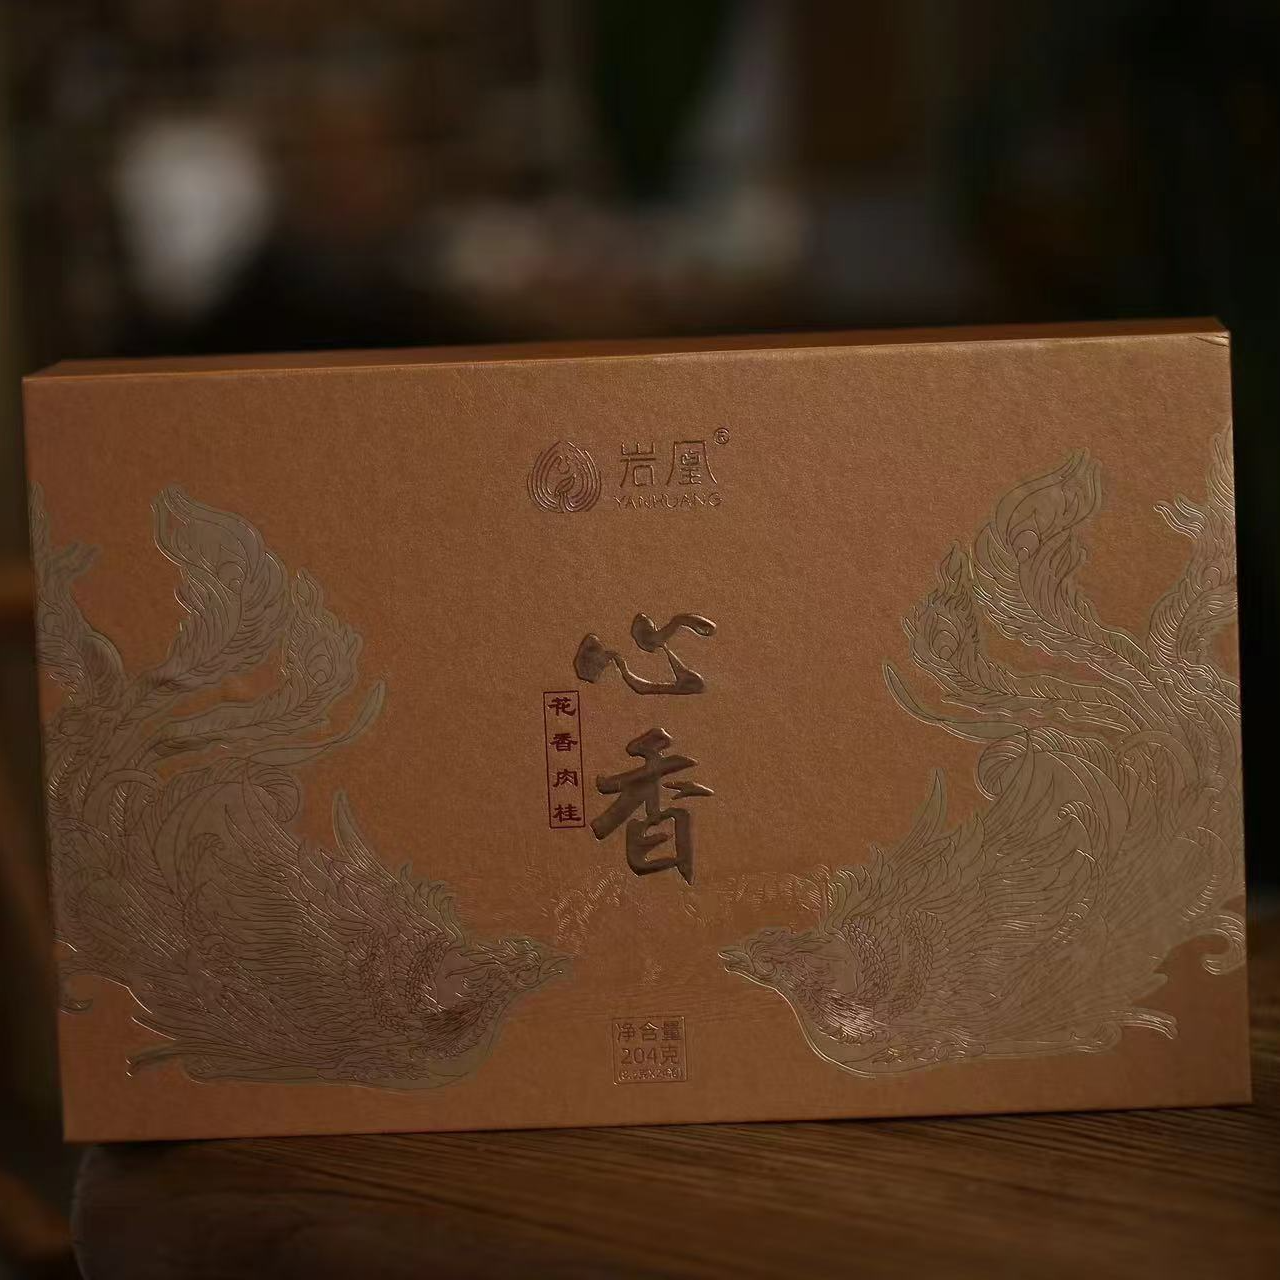 岩凰®
YANHUANG
心香
花香肉桂
净含量
204克